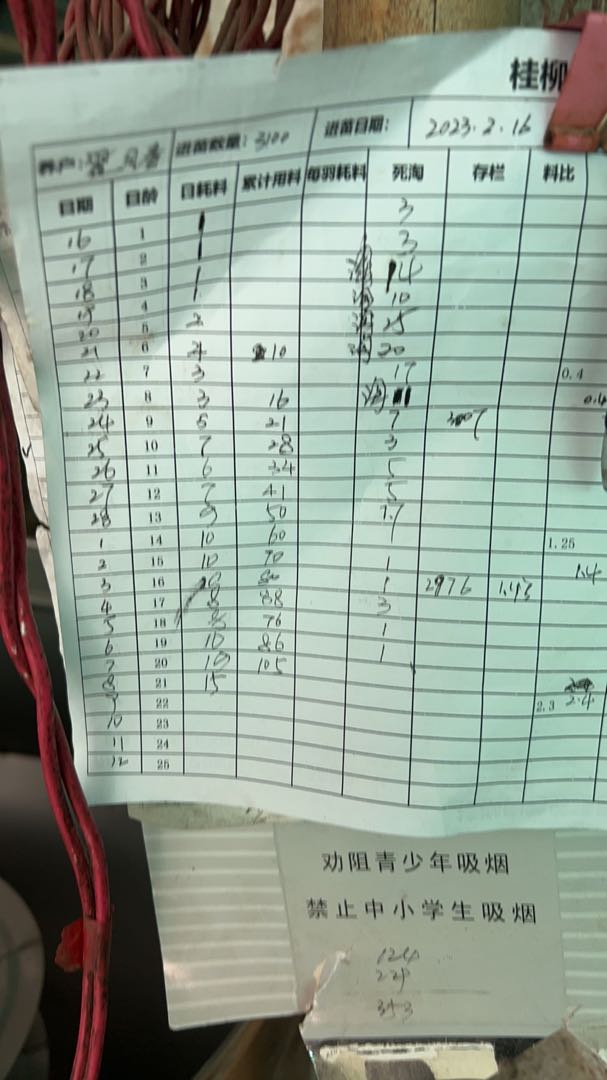 桂柳
进苗数量：3100 进苗日期： 2023.2.16
日期 日龄 日耗料 累计用料 每羽耗料 死淘 存栏 料比
16 1 1 3
17 2 1 3
18 3 1 淘 14
19 4 淘 10
20 5 2 淘 25
21 6 4 10 淘 20
22 7 3 17 0.4
23 8 3 16 淘 0.4
24 9 5 21 7 3007
25 10 7 28 3
26 11 6 34 5
27 12 7 41 5
28 13 9 50
1 14 10 60 1.25
2 15 10 70 1 1.4
3 16 80 1 2976 1.43
4 17 8 88 3
5 18 8 76 1
6 19 10 86 1
7 20 10 105
8 21 15 2.4
9 22 2.3
10 23
11 24
12 25
劝阻青少年吸烟
禁止中小学生吸烟
124
229
353